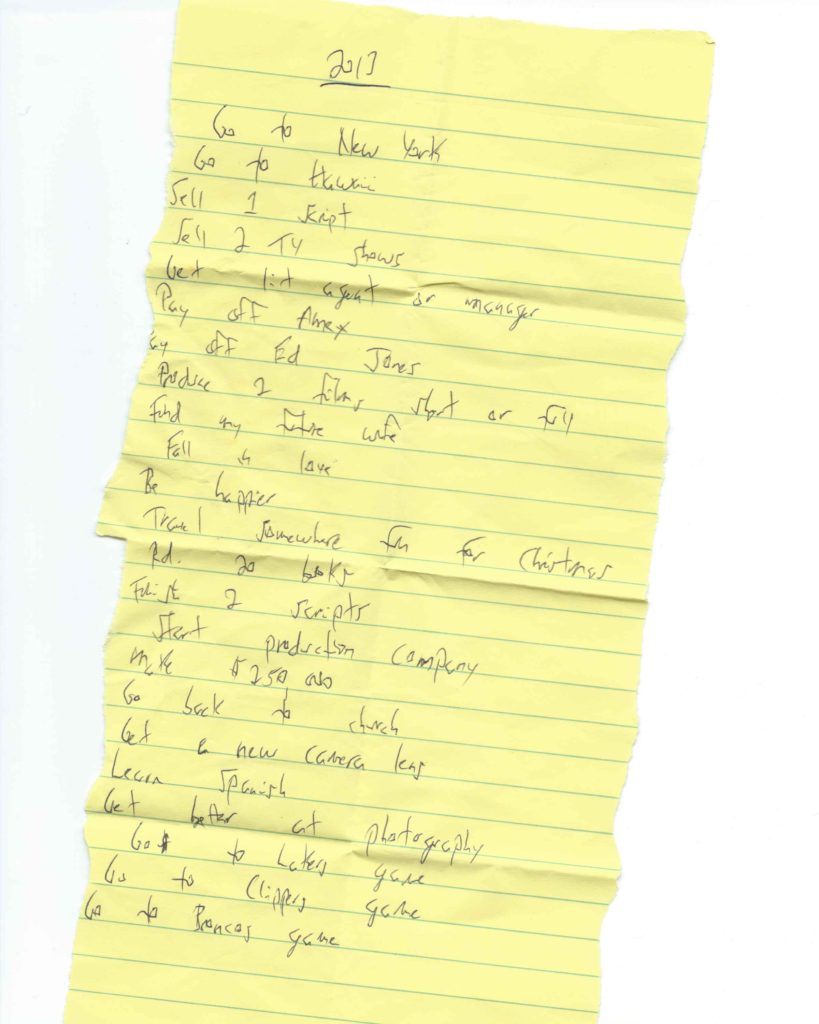 2013
Go to New York
Go to Hawaii
Sell 1 script
Sell 2 TV shows
Get lit agent or manager
Pay off Amex
ay off Ed Jones
Produce 2 films short or full
Find my future wife
Fall in love
Be happier
Travel somewhere fun for Christmas
Rd. 20 books
Finish 2 scripts
Start production company
Make $250 000
Go back to church
Get a new camera lens
Learn Spanish
Get better at photography
Go to Lakers game
Go to Clippers game
Go to Broncos game